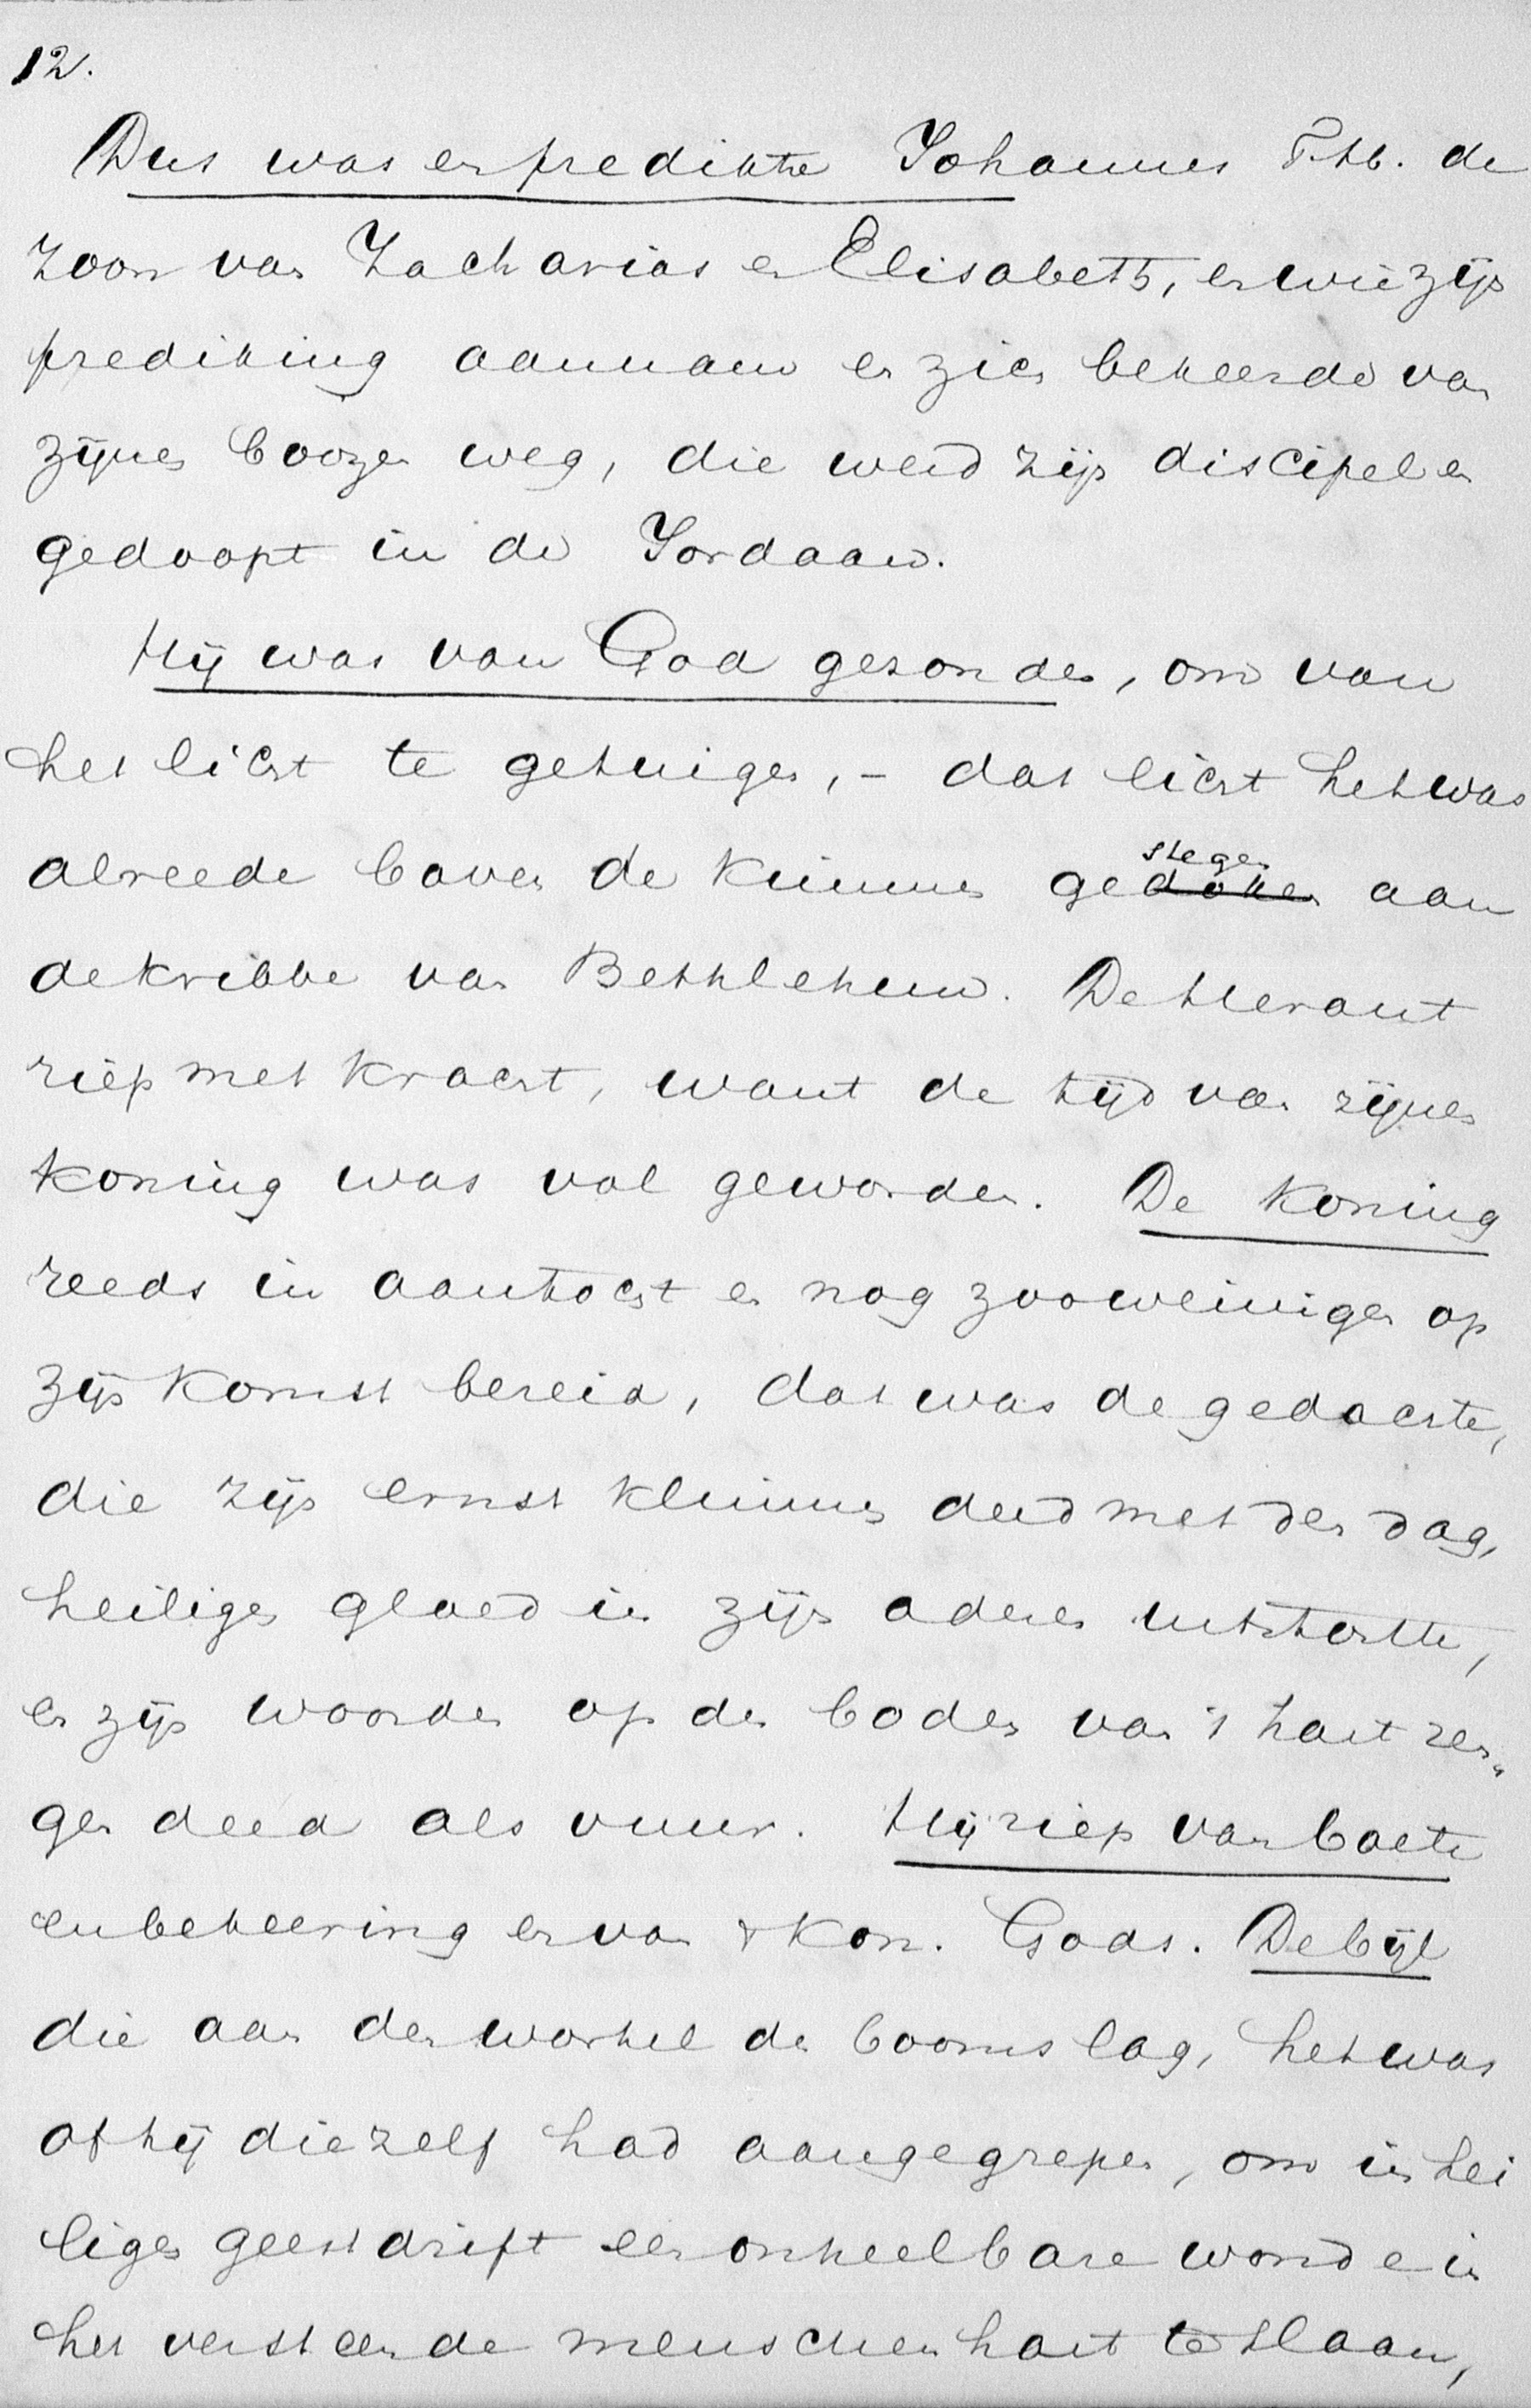 12.
Dus was en predikte Johannes de
zoon van Zacharias en Elisabeth, en wie zijn
prediking aannam en zich bekeerde van
zijnen boozen weg, die werd zijn discipel en
gedoopt in de Jordaan.
Hij was van God gezonden, om van
het licht te getuigen, - dat licht het was
alreede boven de kimmen gedoken stegen aan
de kribbe van Bethlehem. De Heraut
riep met kracht, want de tijd van zijnen
koning was vol geworden. De Koning
reeds in aantocht en nog zoo weinigen op
zijn komst bereid, dat was de gedachte,
die zijn ernst klimmen deed met den dag,
heiligen gloed in zijn aderen uitstortte,
en zijn woorden op den bodem van 't hart zen„
gen deed als vuur. Hij riep van boete
en bekeering en van 't Kon. Gods. De bijl
die aan den wortel des booms lag, het was
of hij die zelf had aangegrepen, om in hei
ligen geestdrift een onheelbare wonde in
het versteende menschenhart te slaan,